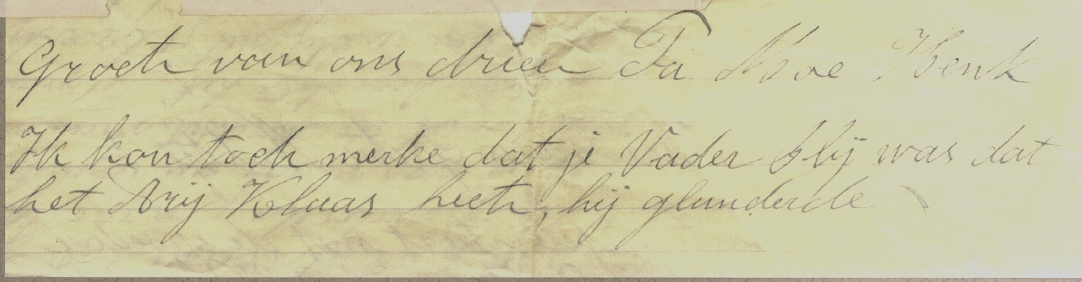 Groeten van ons drieen Pa Moe Henk
Ik kon toch merke dat je Vader blij was dat
het Arij Klaas heete, hij glunderde